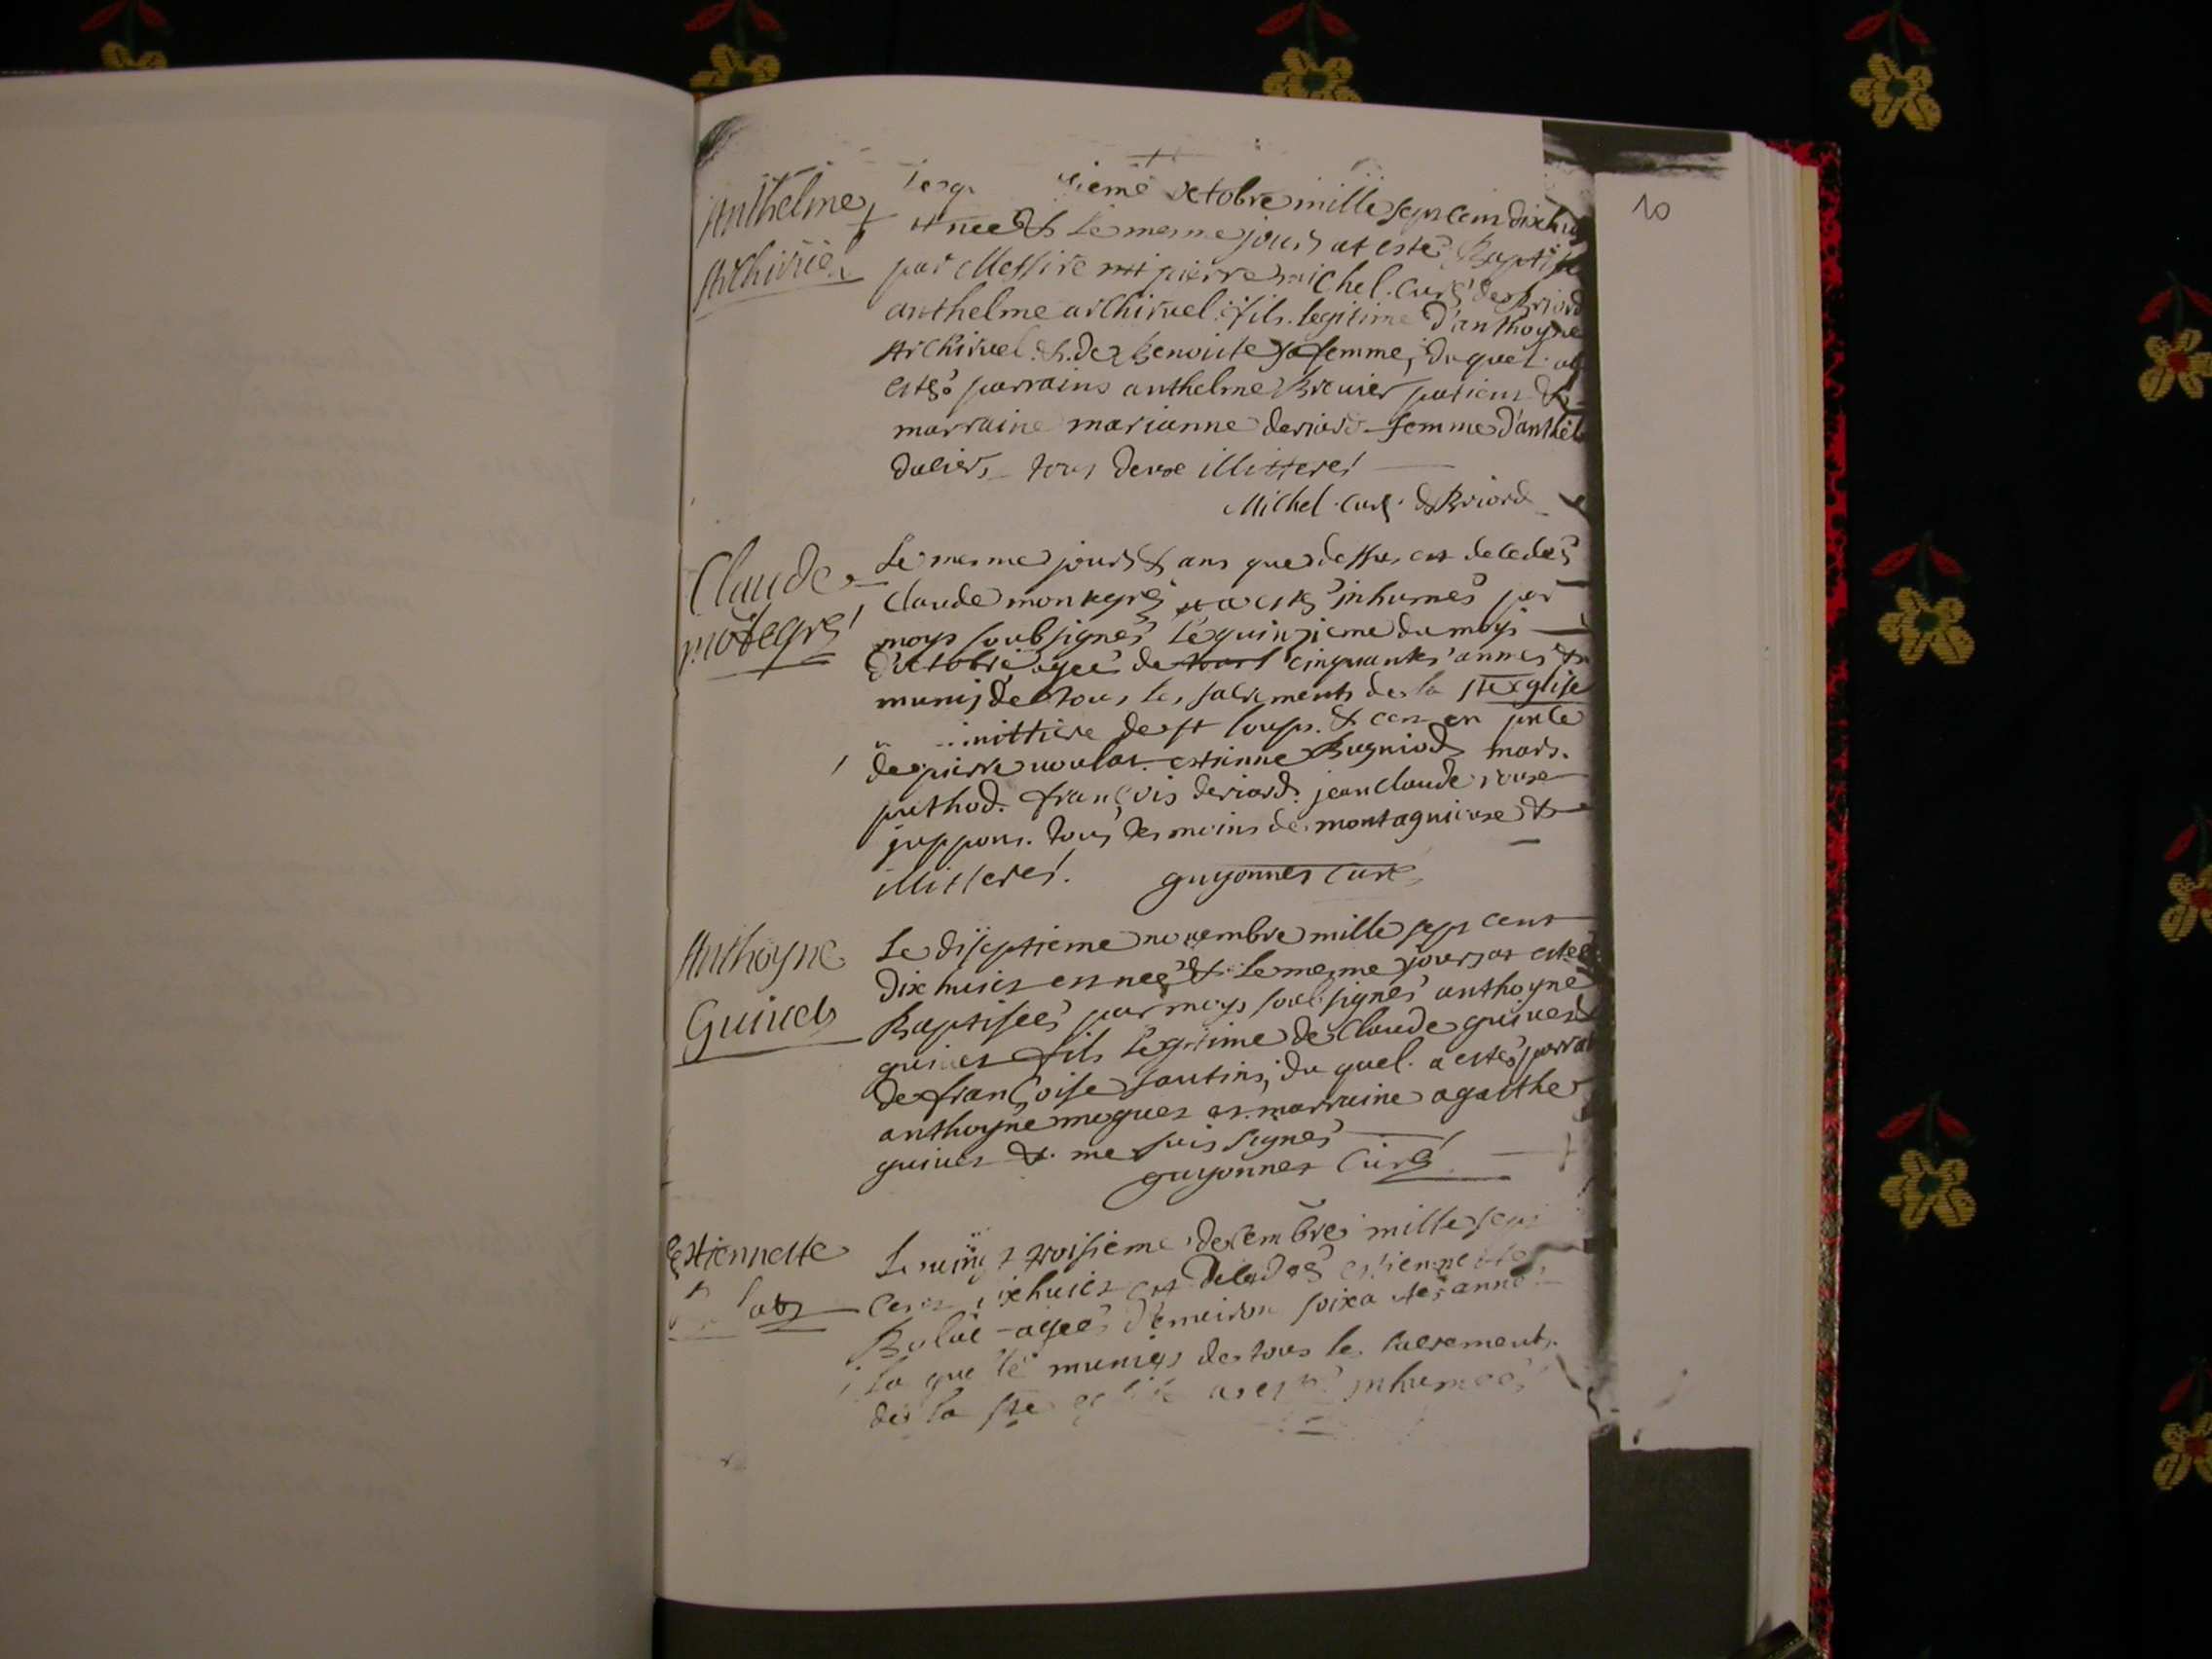 10
Anthelme
Archiruel
sieme octobre mille sept cent dix hui
et nee & le mesme jours at esté Baptise
par Messire pierre michel curé de Briord
anthelme archiruel fils legitime d'anthoyne
Archiruel & de Benoite sa femme, du quel at
estés parrains anthelme Breuier patient &
marraine marianne deriard femme d'anthel
tous deux illitterés
Michel curé de Briord
Claude
motegré
Le mesme jours & ans que dessus est decedés
Claude montegré et a estés inhumés par
moys soubsignés le quinzieme du moys
d'octobre agée de cinquantes années &
munis de tous les sacrements de la ste eglise
de st loups & ces en pnce
de pierre estienne Bugniod mars.
puthod. françois deriard. jean claude roux
juppons. tous tesmoins de montagnieux &
illitterés. guyonnet curé
Anthoyne
Guiuet
Le diseptieme nouembre mille sept cent
dix huict est neé & le mesme jours at estée
Baptisées par moys soubsignés anthoyne
guiuet fils legitime de Claude guiuet &
de françoise sautins, du quel a estés parrai
anthoyne muguet et marraine agatthe
guiuet & me suis signés
guyonnet Curé
Estiennette
Le vingt troisieme desembre mille sept
cent dixhuict est decedés estiennette
Bolat agées d'enuiron soixantes années
la quelle munies de tous les sacrements
de la ste eglise at estés inhumées